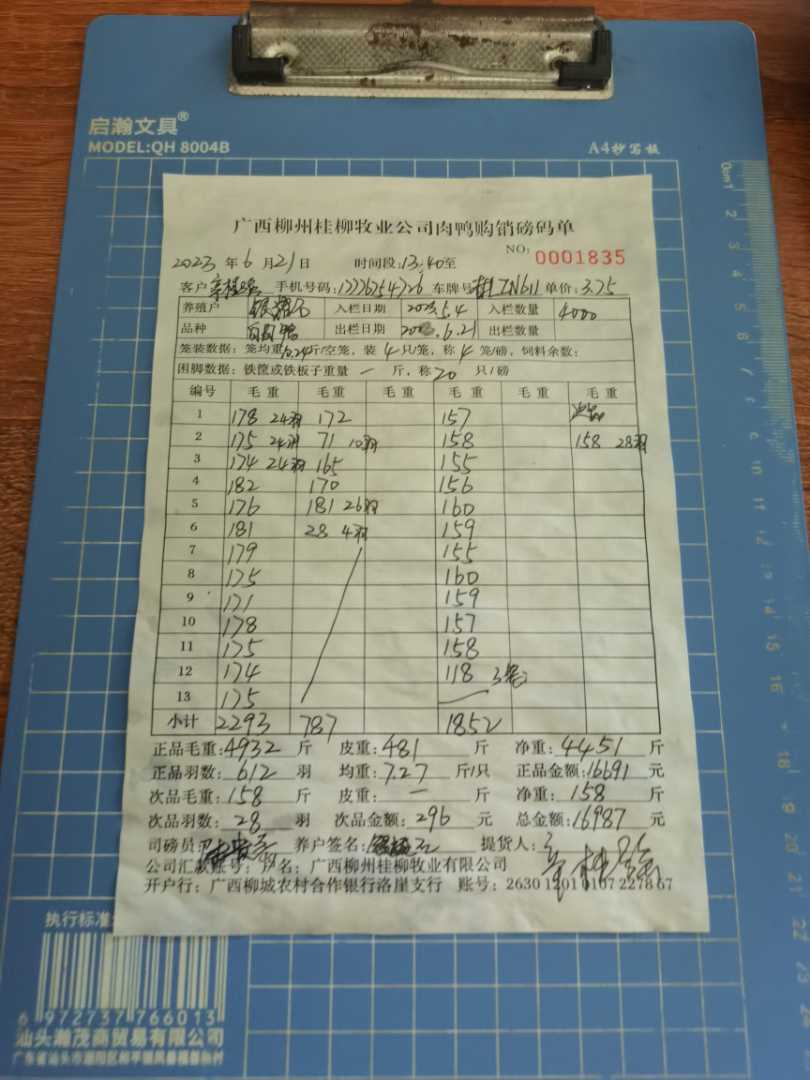 启瀚文具®
MODEL:QH 8004B
A4抄写板
广西柳州桂柳牧业公司肉鸭购销磅码单
NO: 0001835
2023 年 6 月 21 日 时间段:13:40至
客户 手机号码: 车牌号 单价: 3.75
养殖户 入栏日期 2023.5.4 入栏数量 4000
品种 出栏日期 2023.6.21 出栏数量
笼装数据: 笼均重10.24斤/空笼, 装 4 只/笼, 称 4 笼/磅, 饲料余数:
困脚数据: 铁筐或铁板子重量 一 斤, 称 20 只/磅
编号 毛重 毛重 毛重 毛重 毛重 毛重
1 178 24羽 172 157 次品
2 175 24羽 71 10羽 158 158 28羽
3 174 24羽 165 155
4 182 170 156
5 176 181 26羽 160
6 181 28 4羽 159
7 179 155
8 175 160
9 171 159
10 178 157
11 175 158
12 174 118 3笼
13 175
小计 2293 787 1852
正品毛重: 4932 斤 皮重: 481 斤 净重: 4451 斤
正品羽数: 612 羽 均重: 7.27 斤/只 正品金额: 16691 元
次品毛重: 158 斤 皮重: 一 斤 净重: 158 斤
次品羽数: 28 羽 次品金额: 296 元 总金额: 16987 元
司磅员 养户签名: 提货人:
公司汇款账号: 户名: 广西柳州桂柳牧业有限公司
开户行: 广西柳城农村合作银行洛崖支行 账号: 2630 1201 0107 2278 67
执行标准
6 972737 766013
汕头瀚茂商贸易有限公司